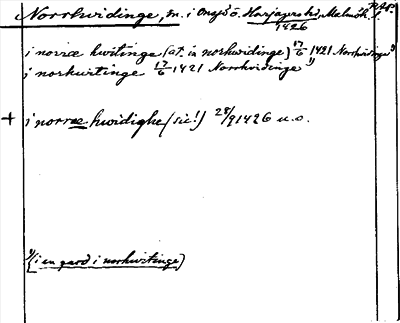 Norrhvidinge, sn. i Onsjö ö. Harjagers hd. Malmöh. l.
1426
i norræ hwitinge (at. in norhwidinge) 17/6 1421 Norrhvidinge 1)
i norhwitinge 17/6 1421 Norrhvidinge 1)
+ i norræ hwidighe (sic!) 28/9 1426 u. o.
1) (i en gard i norhwitinge)